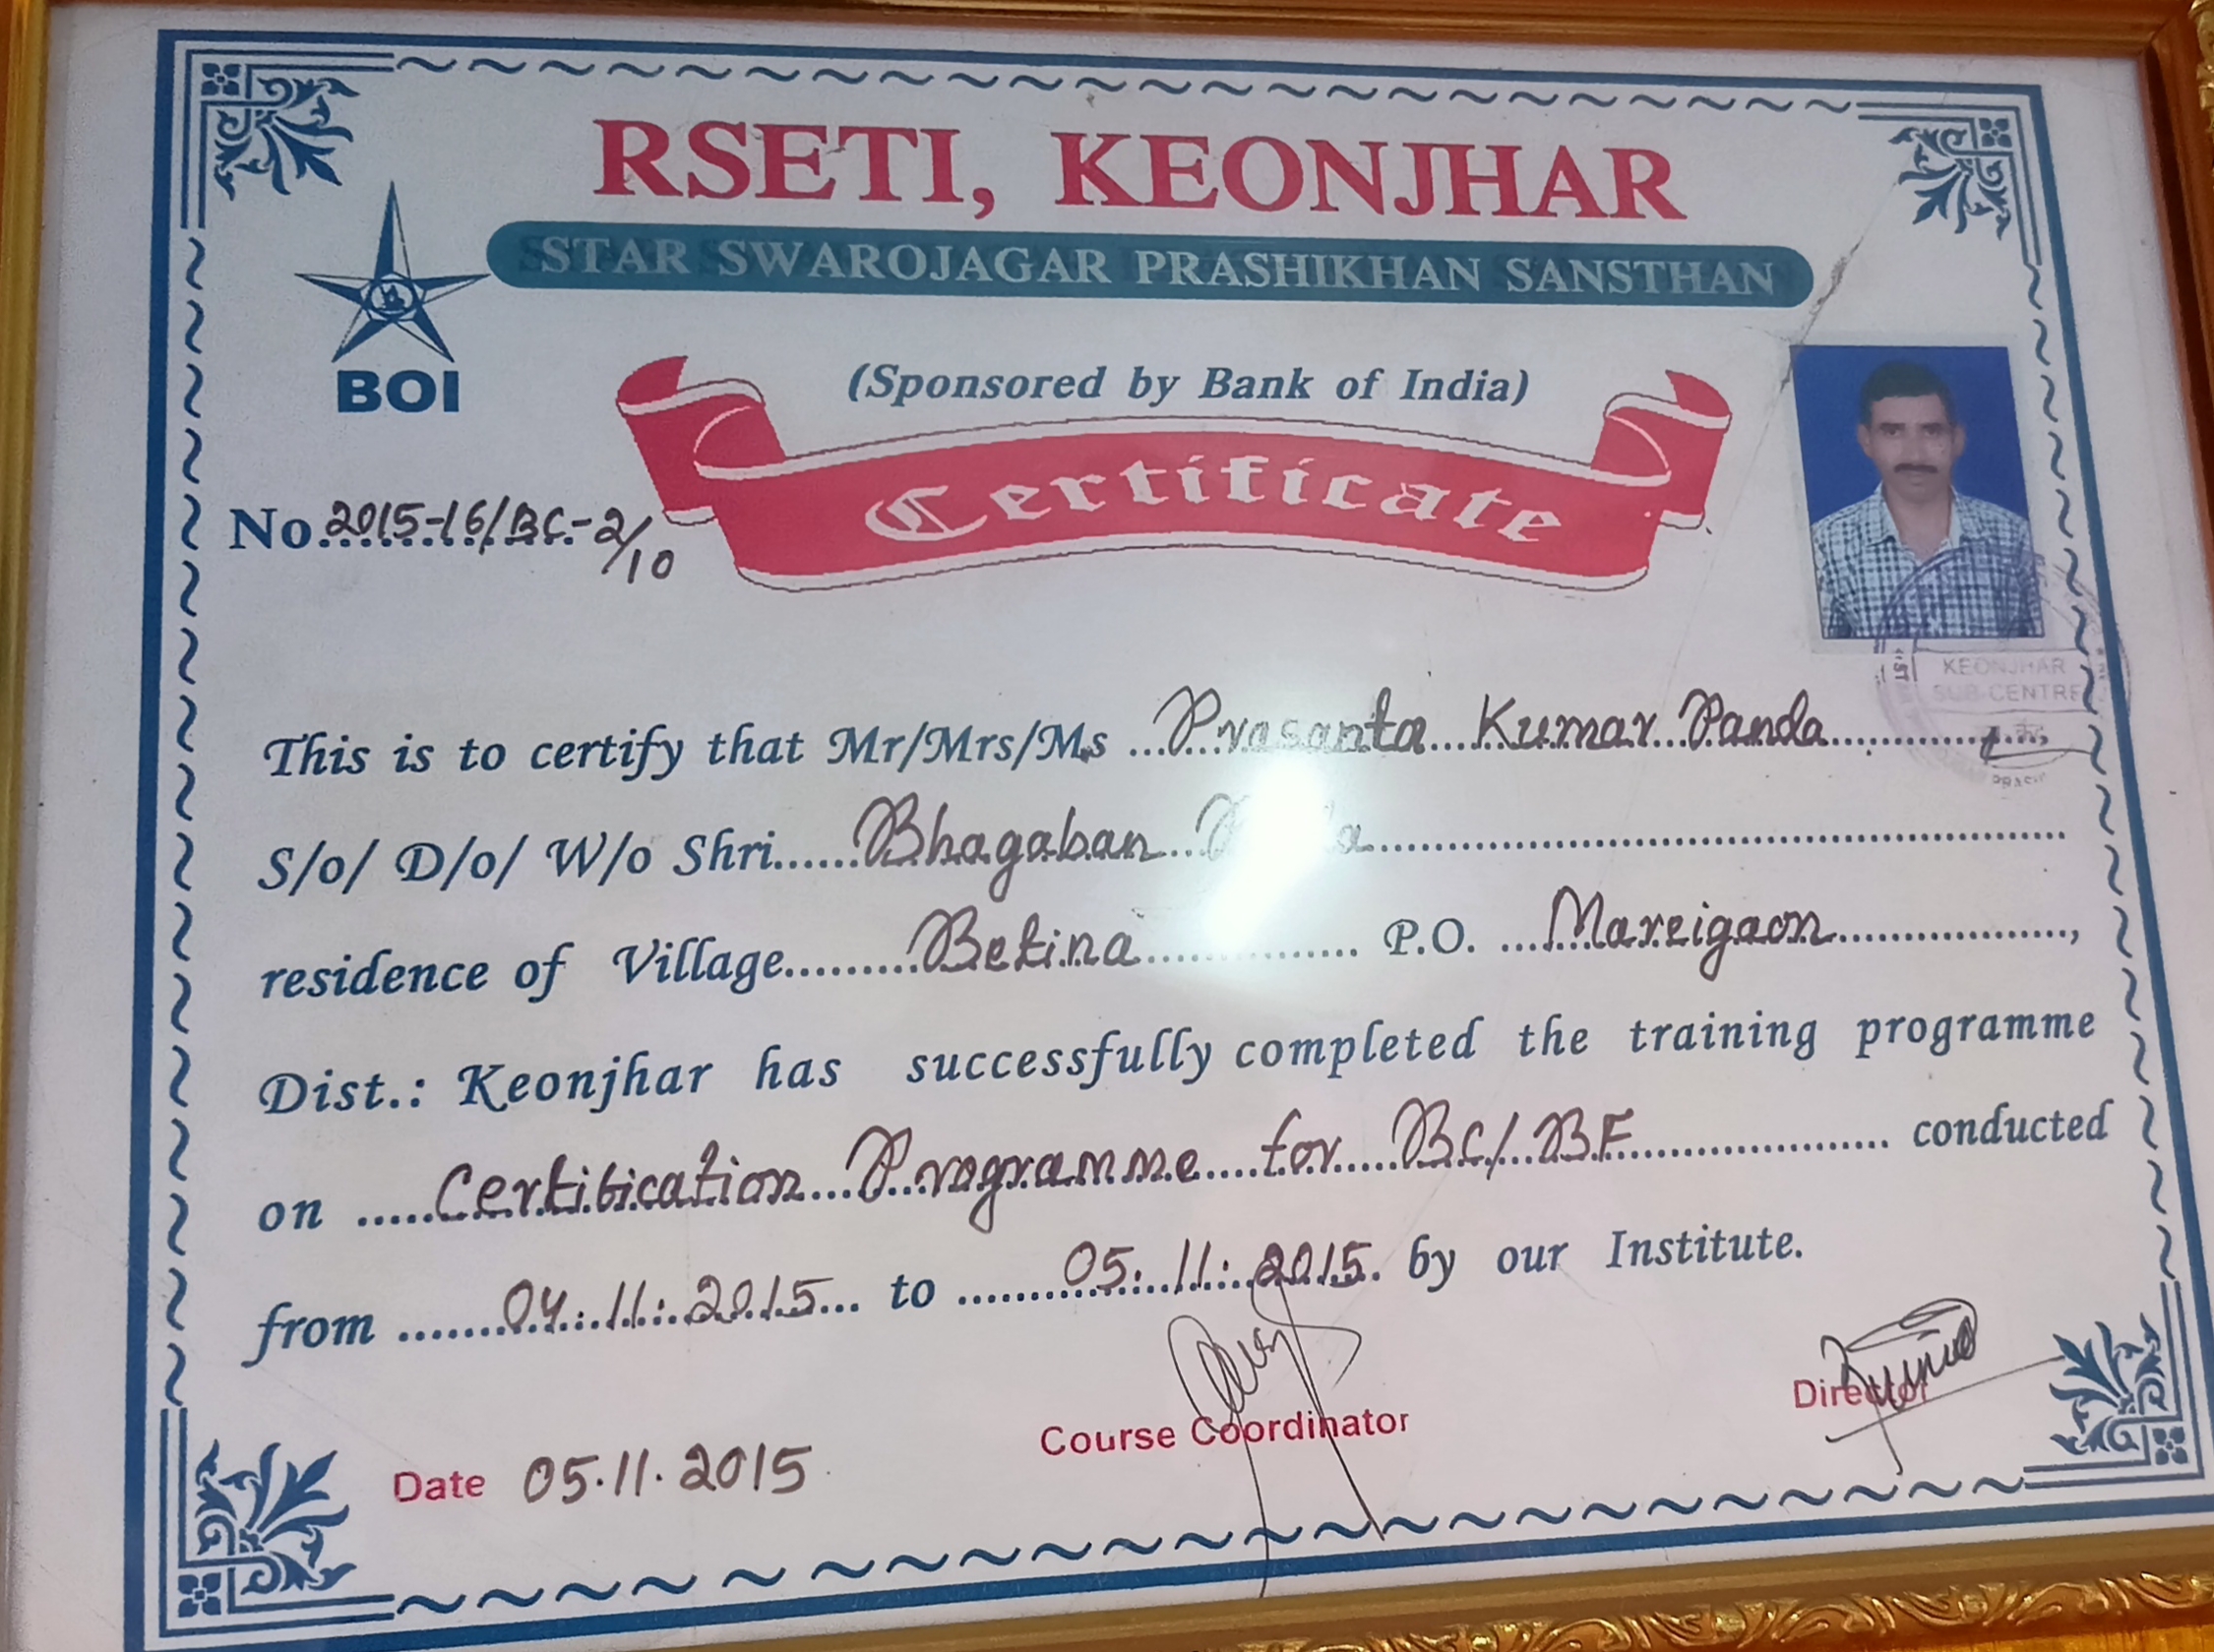 RSETI, KEONJHAR
STAR SWAROJAGAR PRASHIKHAN SANSTHAN
BOI
(Sponsored by Bank of India)
Certificate
No. 2015-16/BC-2/10
KEONJHAR
SUB CENTRE
This is to certify that Mr/Mrs/Ms Prasanta Kumar Panda
S/o/ D/o/ W/o Shri Bhagaban
residence of Village Betina P.O. Mareigaon,
Dist.: Keonjhar has successfully completed the training programme
on Certification Programme for BC/BF conducted
from 04.11.2015 to 05.11.2015 by our Institute.
Date 05.11.2015
Course Coordinator
Director